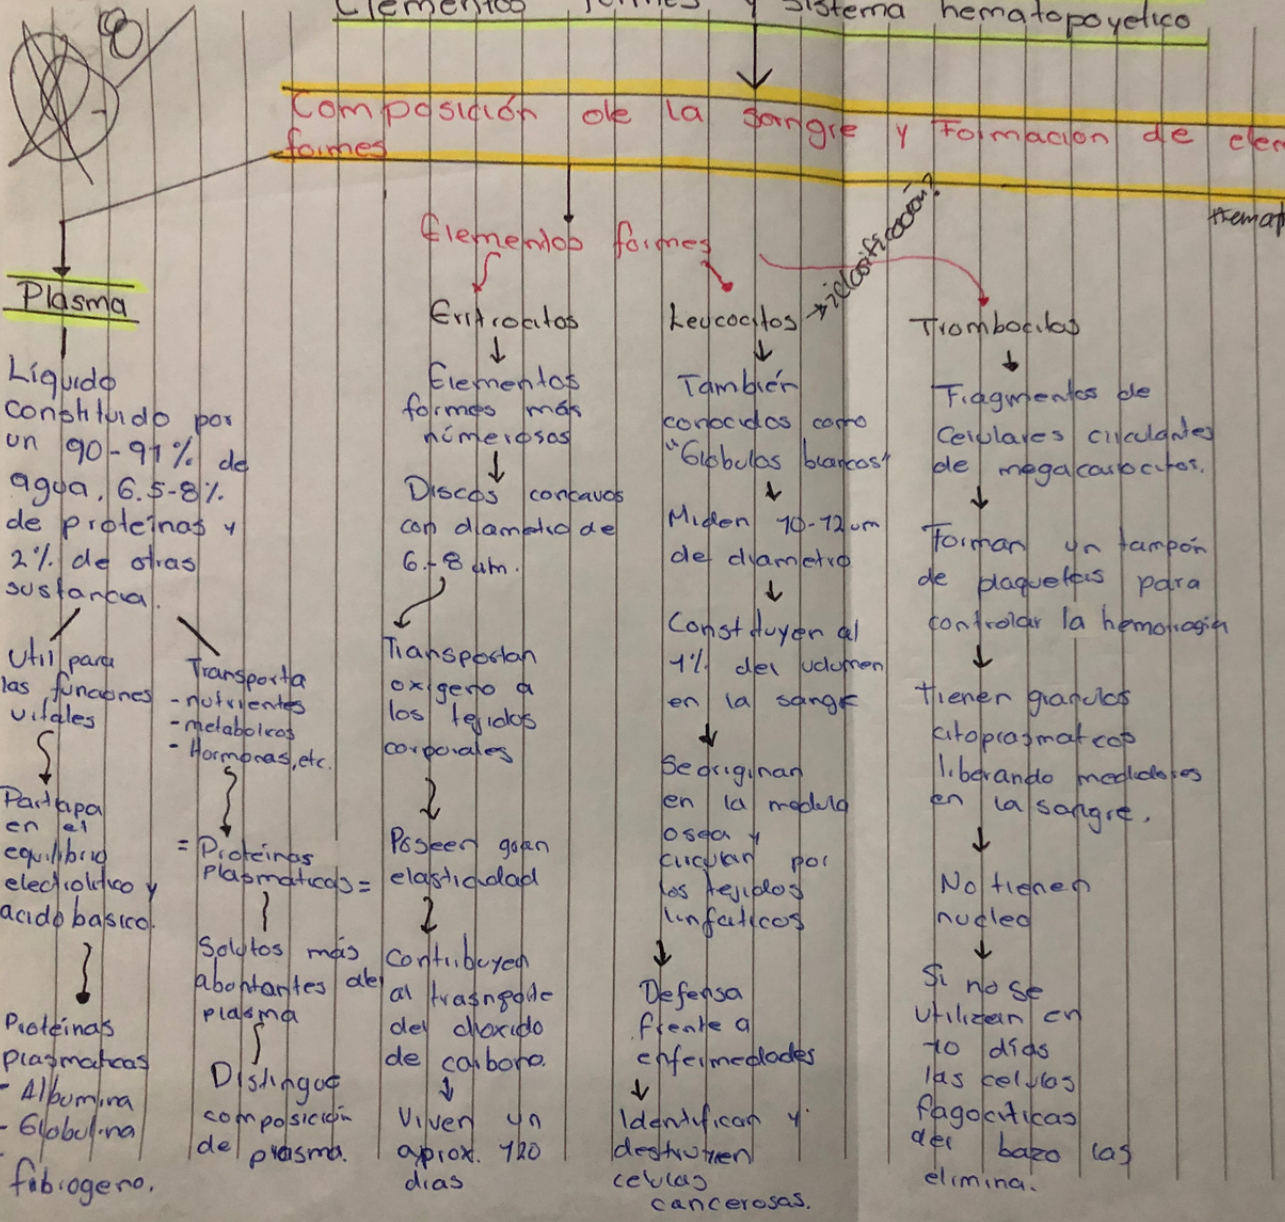 Elementos formes y sistema hematopoyetico
8
Composición de la sangre y Formacion de elem
formes
Hemap
Elementos formes
Plasma
Líquido
constituido por
un 90-91% de
agua, 6.5-8%
de proteínas y
2% de otras
sustancia.
Util para
las funciones
vitales
Participa
en el
equilibrio
electrolitico y
acido basico.
Proteínas
plasmaticas
- Albumina
- Globulina
- fibrogeno.
Transporta
- nutrientes
- metabolicos
- Hormonas, etc.
= Proteínas
plasmaticas =
Solutos más
abontantes de
plasma
Distingue
composición
de plasma.
Eritrocitos
Elementos
formes más
númerosos
Discos concavos
con diametro de
6-8 um.
Transportan
oxigeno a
los tejidos
corporales
Poseen gran
elasticidad
Contribuyen
al trasnporte
del dioxido
de carbono.
Viven un
aprox. 120
dias
Leucocitos → ¿clasificación?
También
conocidos como
"Globulos blancos"
Miden 10-12 um
de diametro
Constituyen al
1% del volumen
en la sangre
Se originan
en la medula
osea y
circulan por
los tejidos
linfaticos
Defensa
frente a
enfermedades
Identifican y
destruyen
celulas
cancerosas.
Trombocitos
Fragmentos de
Celulares circulantes
de megacariocitos.
Forman un tampón
de plaquetas para
controlar la hemorragia
tienen granulos
citoplasmaticos
liberando mediadores
en la sangre.
No tienen
nucleo
Si no se
utilizan en
10 días
las celulas
fagociticas
del bazo las
elimina.